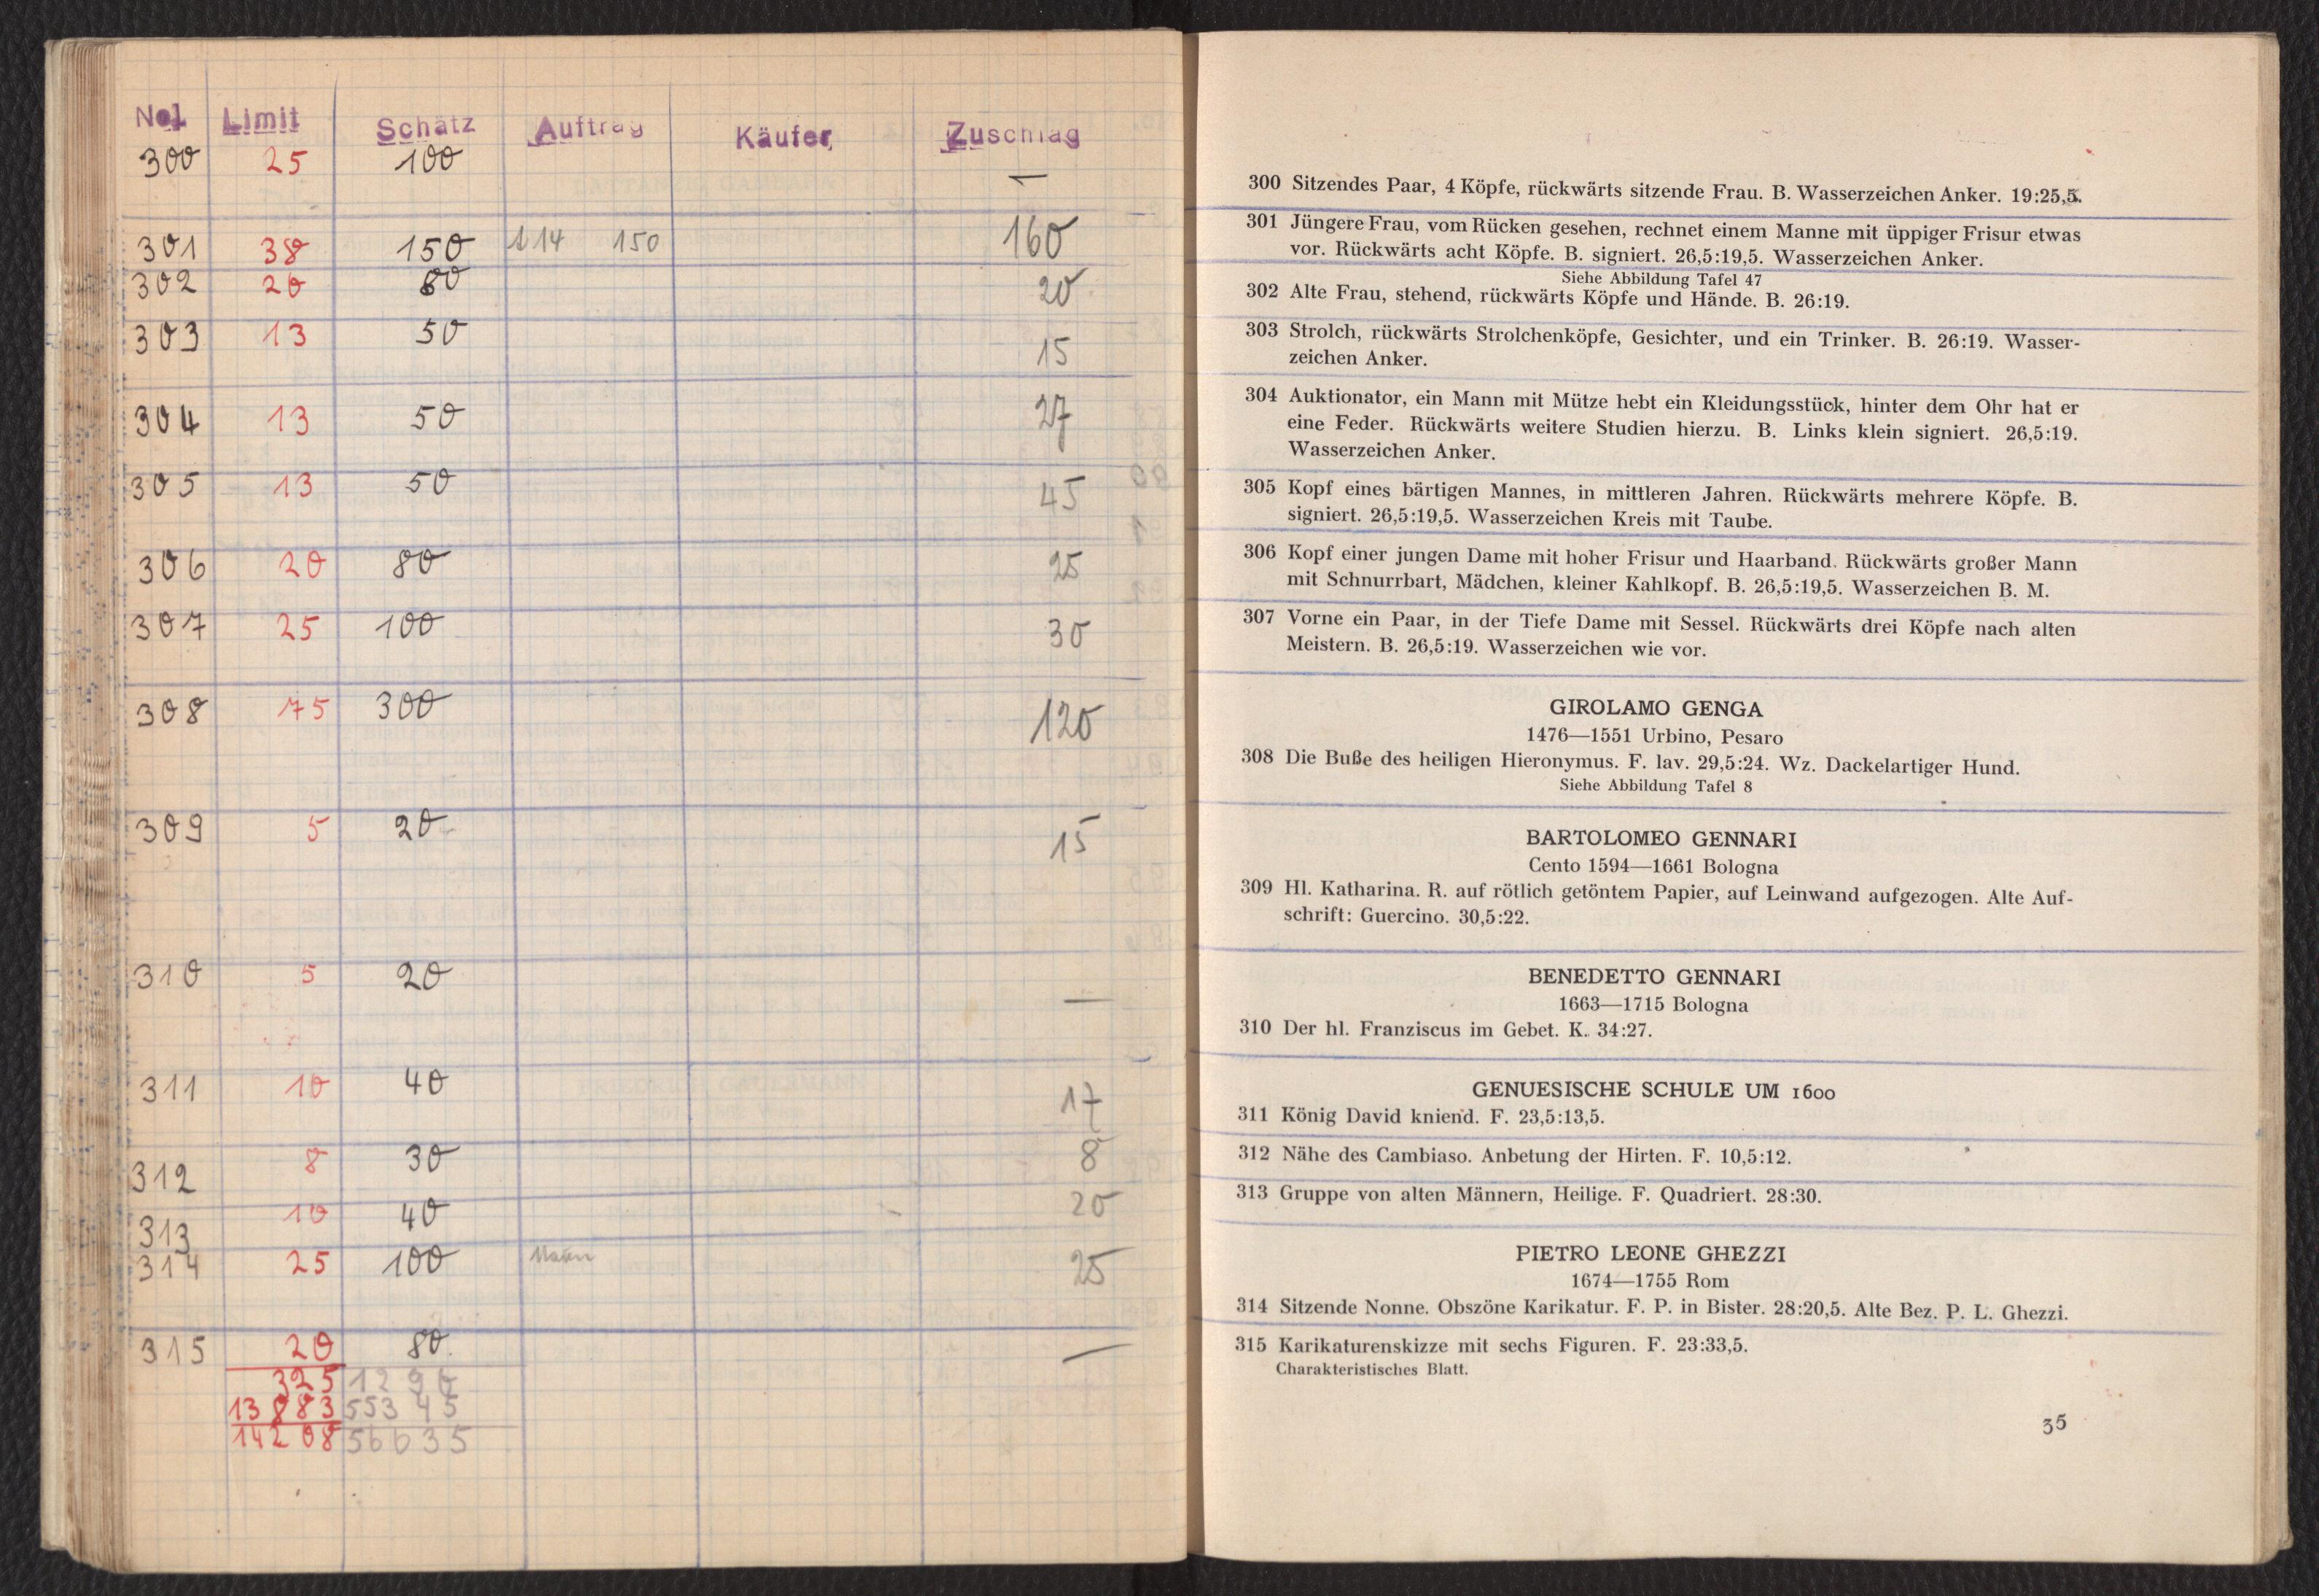 No. Limit Schätz Auftrag Käufer Zuschlag
300 25 100 —
301 38 150 114 150 160
302 20 80 20
303 13 50 15
304 13 50 27
305 13 50 45
306 20 80 25
307 25 100 30
308 75 300 120
309 5 20 15
310 5 20 —
311 10 40 17
312 8 30 8
313 10 40 20
314 25 100 25
315 20 80. —
325 1290
13883 55345
14208 56635
300 Sitzendes Paar, 4 Köpfe, rückwärts sitzende Frau. B. Wasserzeichen Anker. 19:25,5.
301 Jüngere Frau, vom Rücken gesehen, rechnet einem Manne mit üppiger Frisur etwas
vor. Rückwärts acht Köpfe. B. signiert. 26,5:19,5. Wasserzeichen Anker.
Siehe Abbildung Tafel 47
302 Alte Frau, stehend, rückwärts Köpfe und Hände. B. 26:19.
303 Strolch, rückwärts Strolchenköpfe, Gesichter, und ein Trinker. B. 26:19. Wasser-
zeichen Anker.
304 Auktionator, ein Mann mit Mütze hebt ein Kleidungsstück, hinter dem Ohr hat er
eine Feder. Rückwärts weitere Studien hierzu. B. Links klein signiert. 26,5:19.
Wasserzeichen Anker.
305 Kopf eines bärtigen Mannes, in mittleren Jahren. Rückwärts mehrere Köpfe. B.
signiert. 26,5:19,5. Wasserzeichen Kreis mit Taube.
306 Kopf einer jungen Dame mit hoher Frisur und Haarband. Rückwärts großer Mann
mit Schnurrbart, Mädchen, kleiner Kahlkopf. B. 26,5:19,5. Wasserzeichen B. M.
307 Vorne ein Paar, in der Tiefe Dame mit Sessel. Rückwärts drei Köpfe nach alten
Meistern. B. 26,5:19. Wasserzeichen wie vor.
GIROLAMO GENGA
1476—1551 Urbino, Pesaro
308 Die Buße des heiligen Hieronymus. F. lav. 29,5:24. Wz. Dackelartiger Hund.
Siehe Abbildung Tafel 8
BARTOLOMEO GENNARI
Cento 1594—1661 Bologna
309 Hl. Katharina. R. auf rötlich getöntem Papier, auf Leinwand aufgezogen. Alte Auf-
schrift: Guercino. 30,5:22.
BENEDETTO GENNARI
1663—1715 Bologna
310 Der hl. Franziscus im Gebet. K. 34:27.
GENUESISCHE SCHULE UM 1600
311 König David kniend. F. 23,5:13,5.
312 Nähe des Cambiaso. Anbetung der Hirten. F. 10,5:12.
313 Gruppe von alten Männern, Heilige. F. Quadriert. 28:30.
PIETRO LEONE GHEZZI
1674—1755 Rom
314 Sitzende Nonne. Obszöne Karikatur. F. P. in Bister. 28:20,5. Alte Bez. P. L. Ghezzi.
315 Karikaturenskizze mit sechs Figuren. F. 23:33,5.
Charakteristisches Blatt.
35